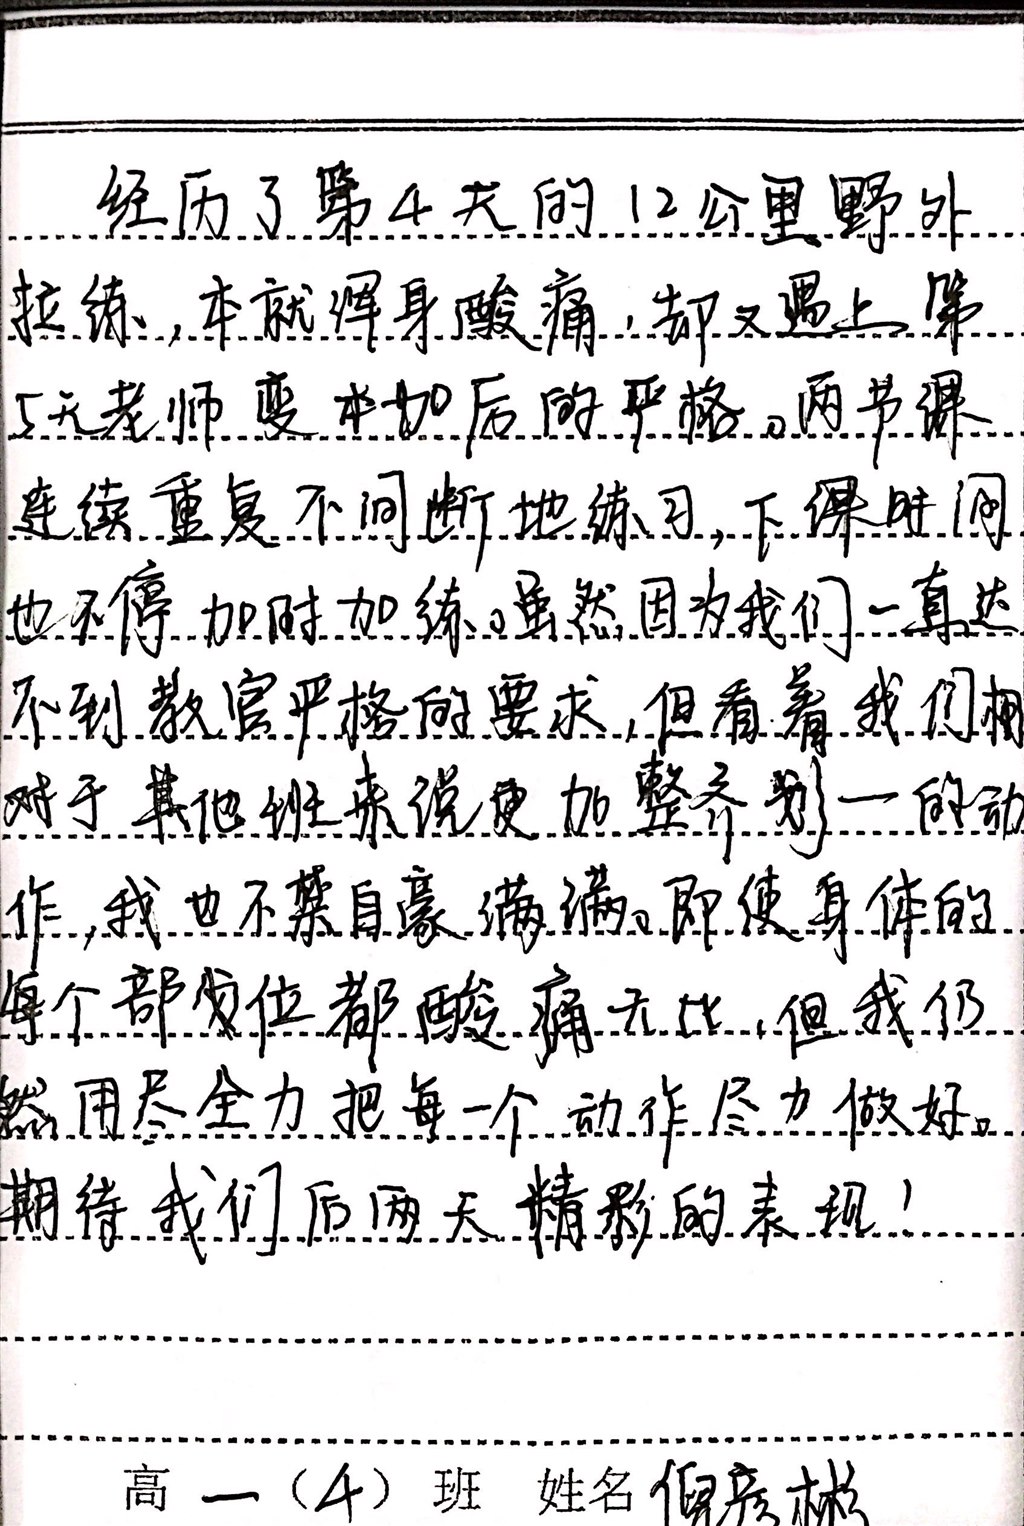 经历了第4天的12公里野外
拉练,本就浑身酸痛,却又遇上第
5天老师变本加后的严格。两节课
连续重复不间断地练习,下课时间
也不停加时加练。虽然因为我们一直达
不到教官严格的要求,但看着我们相
对于其他班来说更加整齐划一的动
作,我也不禁自豪满满。即使身体的
每个部位都酸痛无比,但我仍
然用尽全力把每一个动作尽力做好。
期待我们后两天精彩的表现!
高一(4)班 姓名倪彦彬